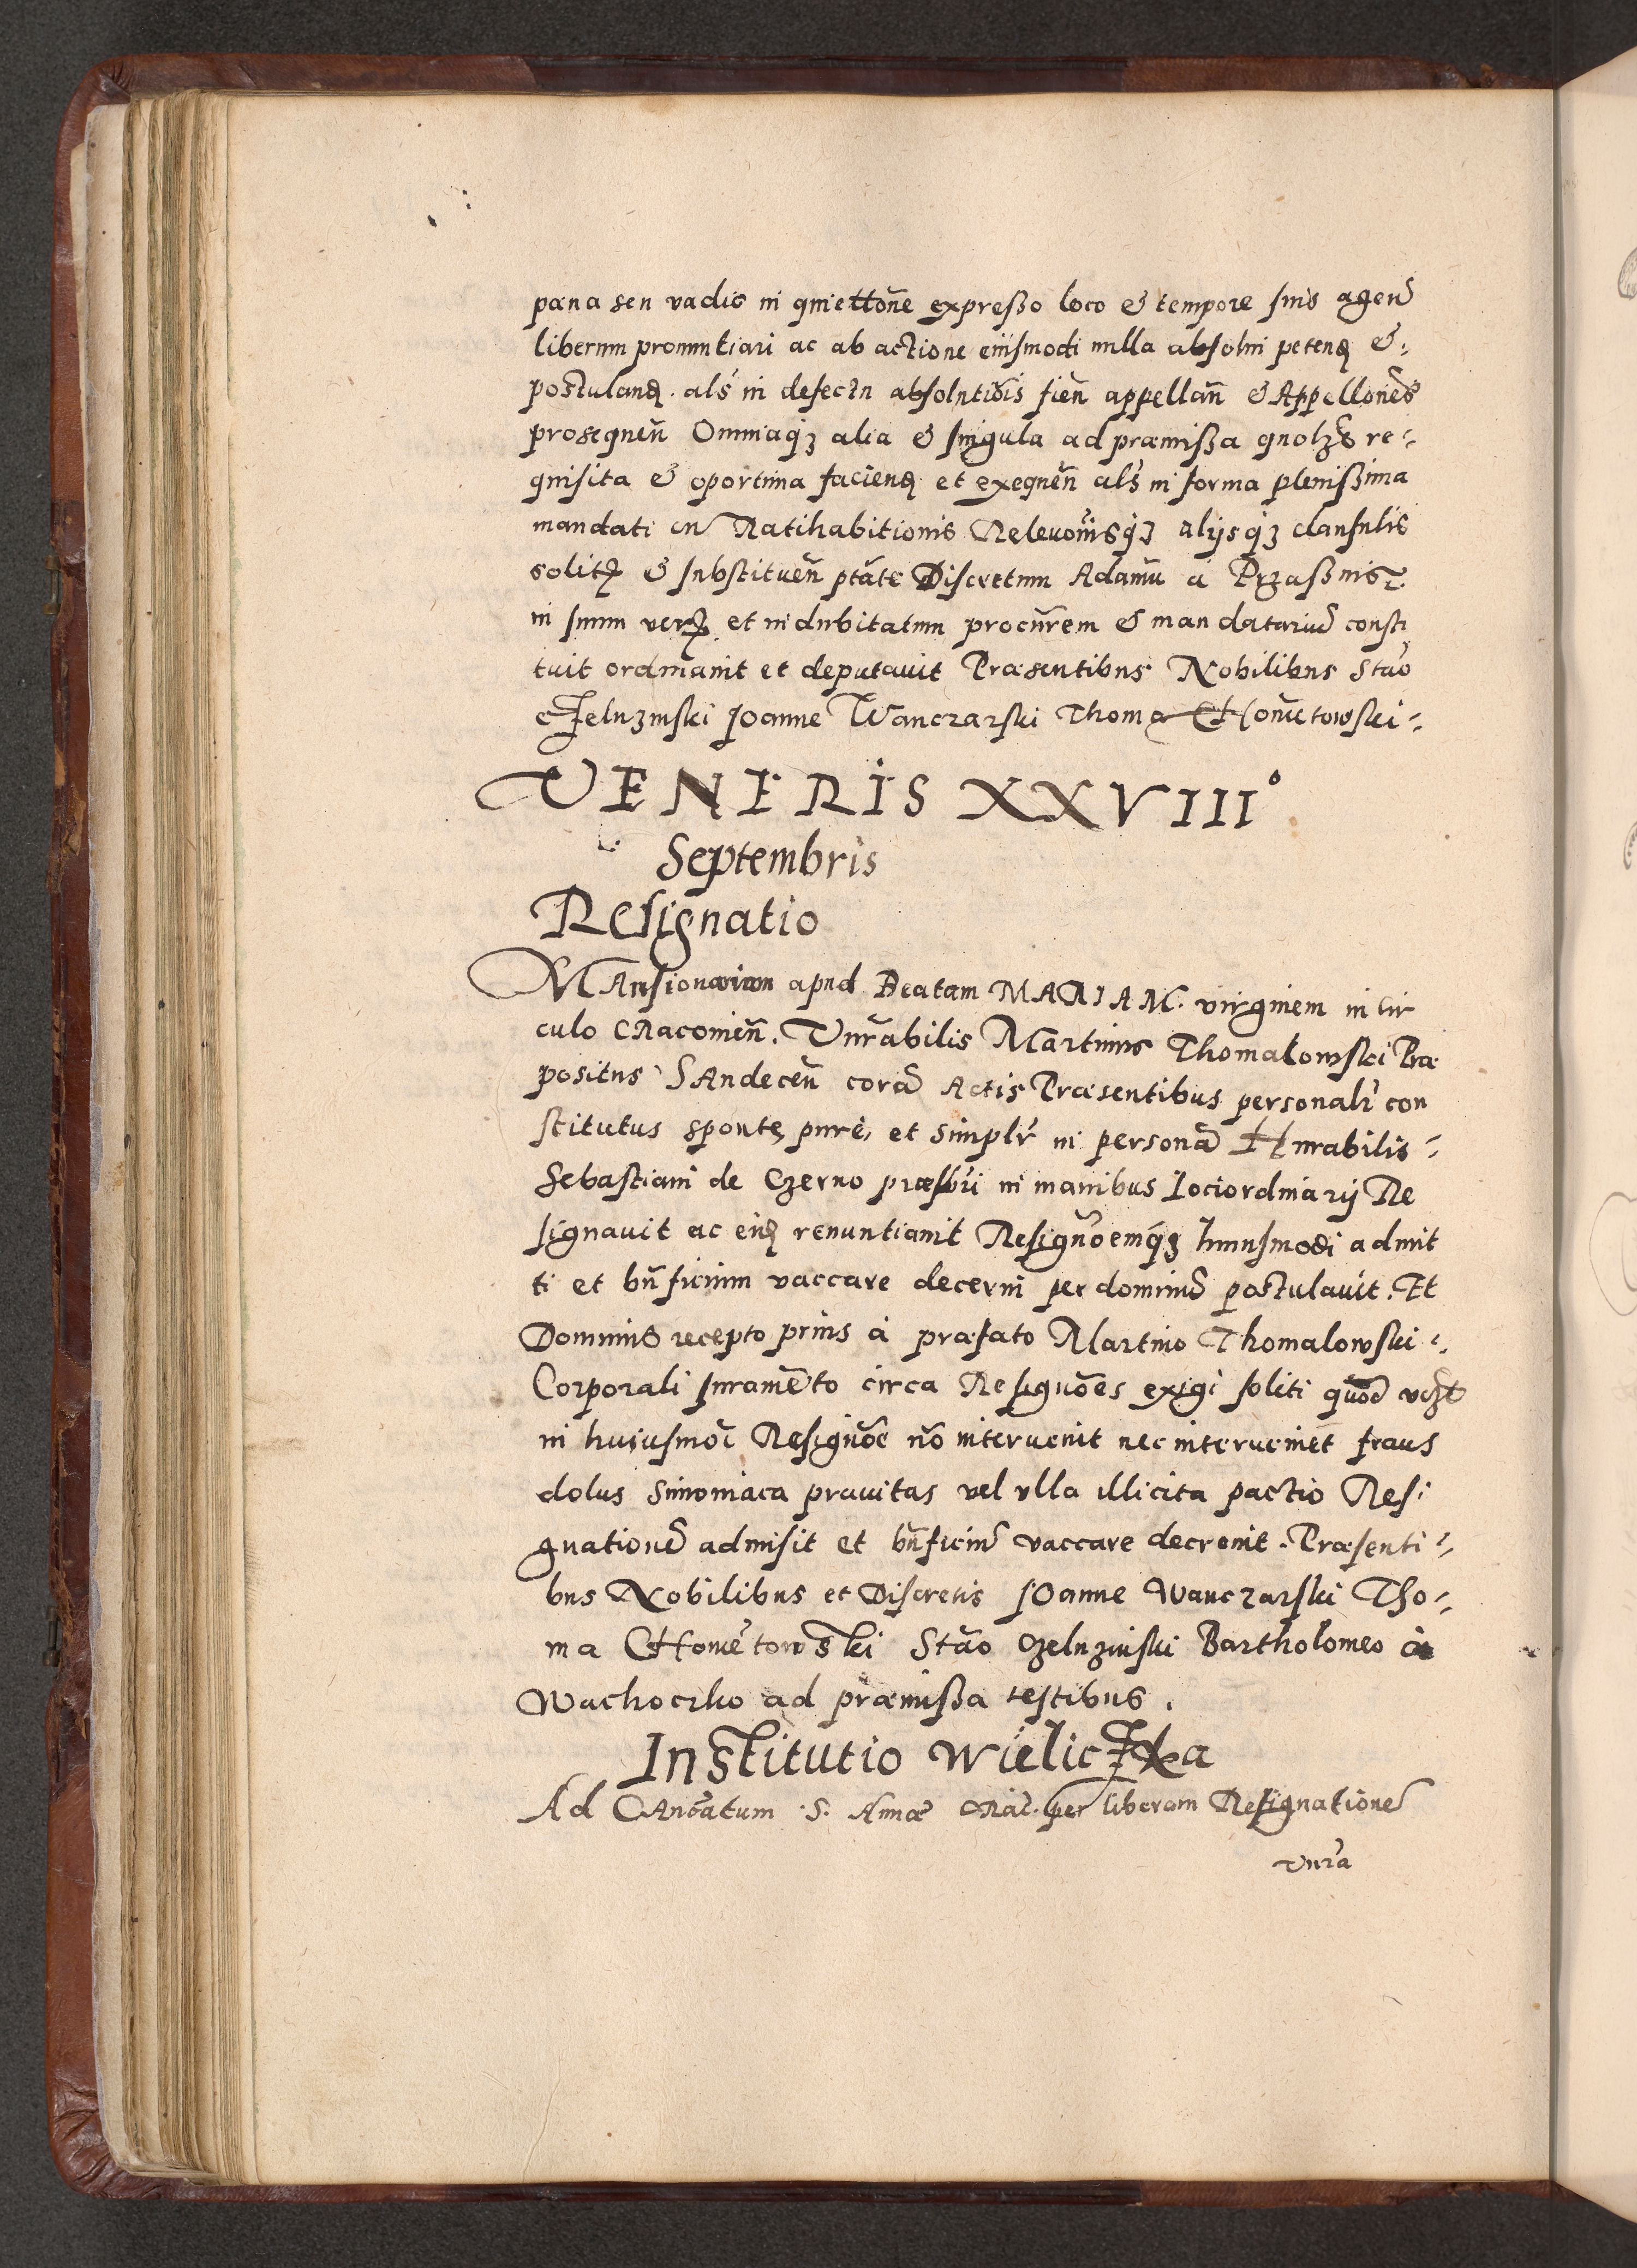 pœna seu vadio in quiettōne expresso loco & tempore suis agen̄
liberum pronuntiari ac ab actione eiusmodi nulla absolui petend &
postuland. als in defectu absolutiōis fien̄ appellan̄ & Appellōnes
prosequen̄ Omniaq3 alia & singula ad præmissa quolz re-
quisita & oportuna faciend et exequen̄ als in forma plenissima
mandati cū Ratihabitionis Releuōnisq3 alijsq3 clausulis
solitis & substituen̄ ptāte Discretum Adamū à Przassnis
in suum verum et indubitatum procūrem & mandatariū consti
tuit ordinauit et deputauit Præsentibus Nobilibus Stāo
Czeluzinski Joanne Wanczarski Thoma Chomētowski
VENERIS XXVIII°
Septembris
Resignatio
MAnsionariam apud Beatam MARIAM virginem in Cir
culo CRacouien̄. Vnrābilis Martinus Thomalowski Præ
positus SAndecen̄ corā Actis Præsentibus personalr con
stitutus sponte, pure, et simplr in personā Hnrabilis
Sebastiani de Czerno præsbri in manibus Lociordinarij Re
signauit ac eid renuntiauit Resignōemq3 huiusmodi admit
ti et bn̄ficium vaccare decerni per dominū postulauit. Et
Dominus recepto prius à præfato Martino Thomalowski
Corporali Juramēto circa Resignōes exigi soliti quod vczt
in huiusmōi Resignōe nō interuenit nec interueniet fraus
dolus Simoniaca prauitas vel vlla illicita pactio Resi
gnationē admisit et bn̄ficiū vaccare decreuit. Præsenti-
bus Nobilibus et Discretis JOanne Wanczarski Tho-
ma CHomētowski Stāo Czeluzinski Bartholomeo à
Wachoczko ad præmissa testibus.
Institutio WieliczKa
Ad CAnōatum S. Annæ CRac. per liberam Resignationē
Vnra